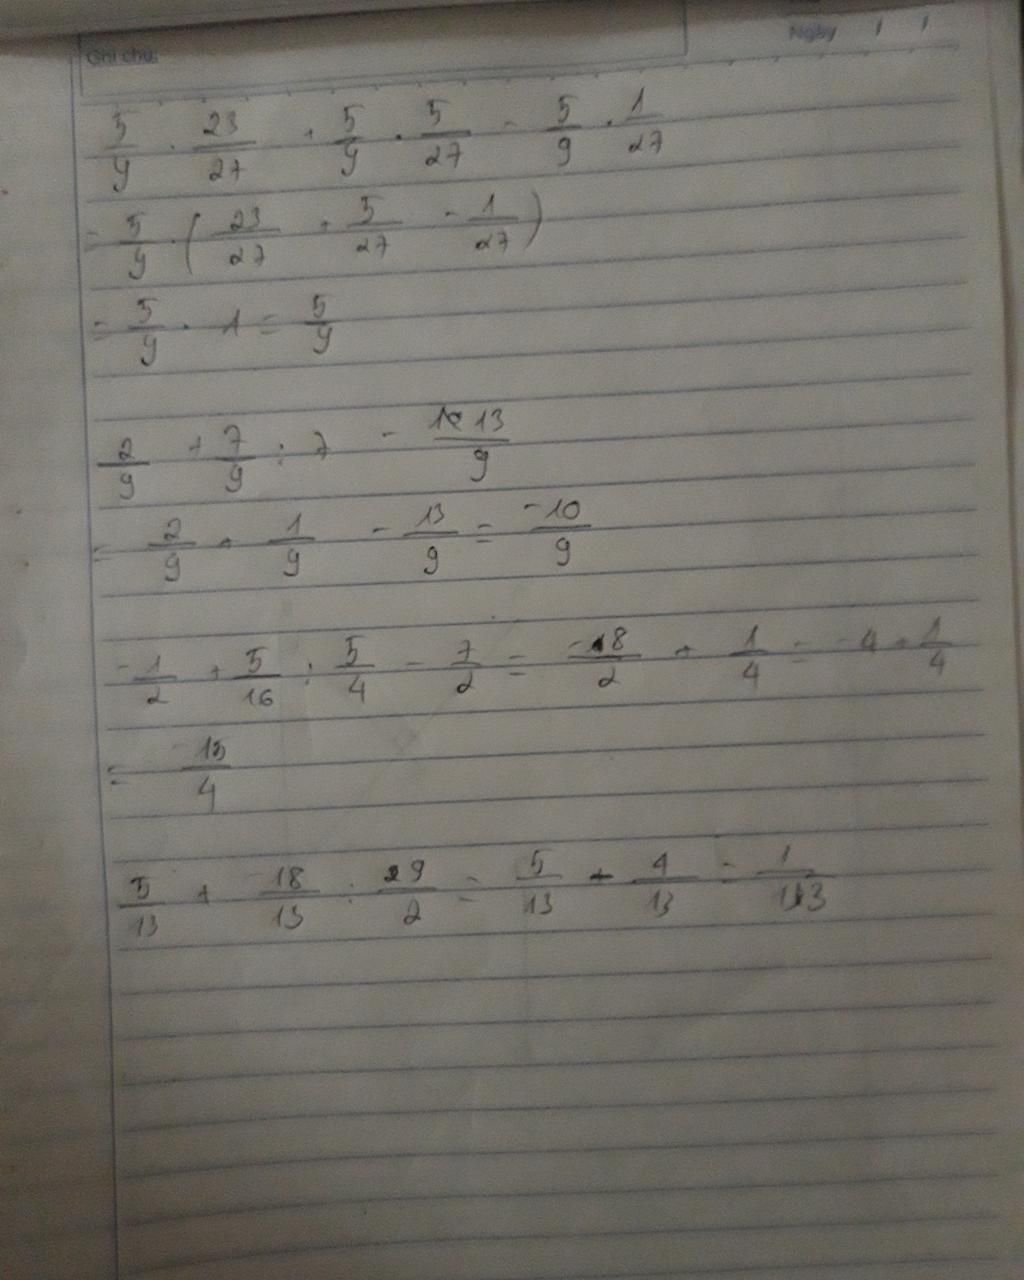 Ghi chú:
Ngày / /
5/9 . 23/27 + 5/9 . 5/27 - 5/9 . 1/27
= 5/9 . ( 23/27 + 5/27 - 1/27 )
= 5/9 . 1 = 5/9
2/9 + 7/9 : 7 - 13/9
= 2/9 + 1/9 - 13/9 = -10/9
-1/2 + 5/16 : 5/4 - 7/2 = -8/2 + 1/4 = -4 + 1/4
= -15/4
5/13 + -18/13 : 9/2 = 5/13 - 4/13 = 1/13